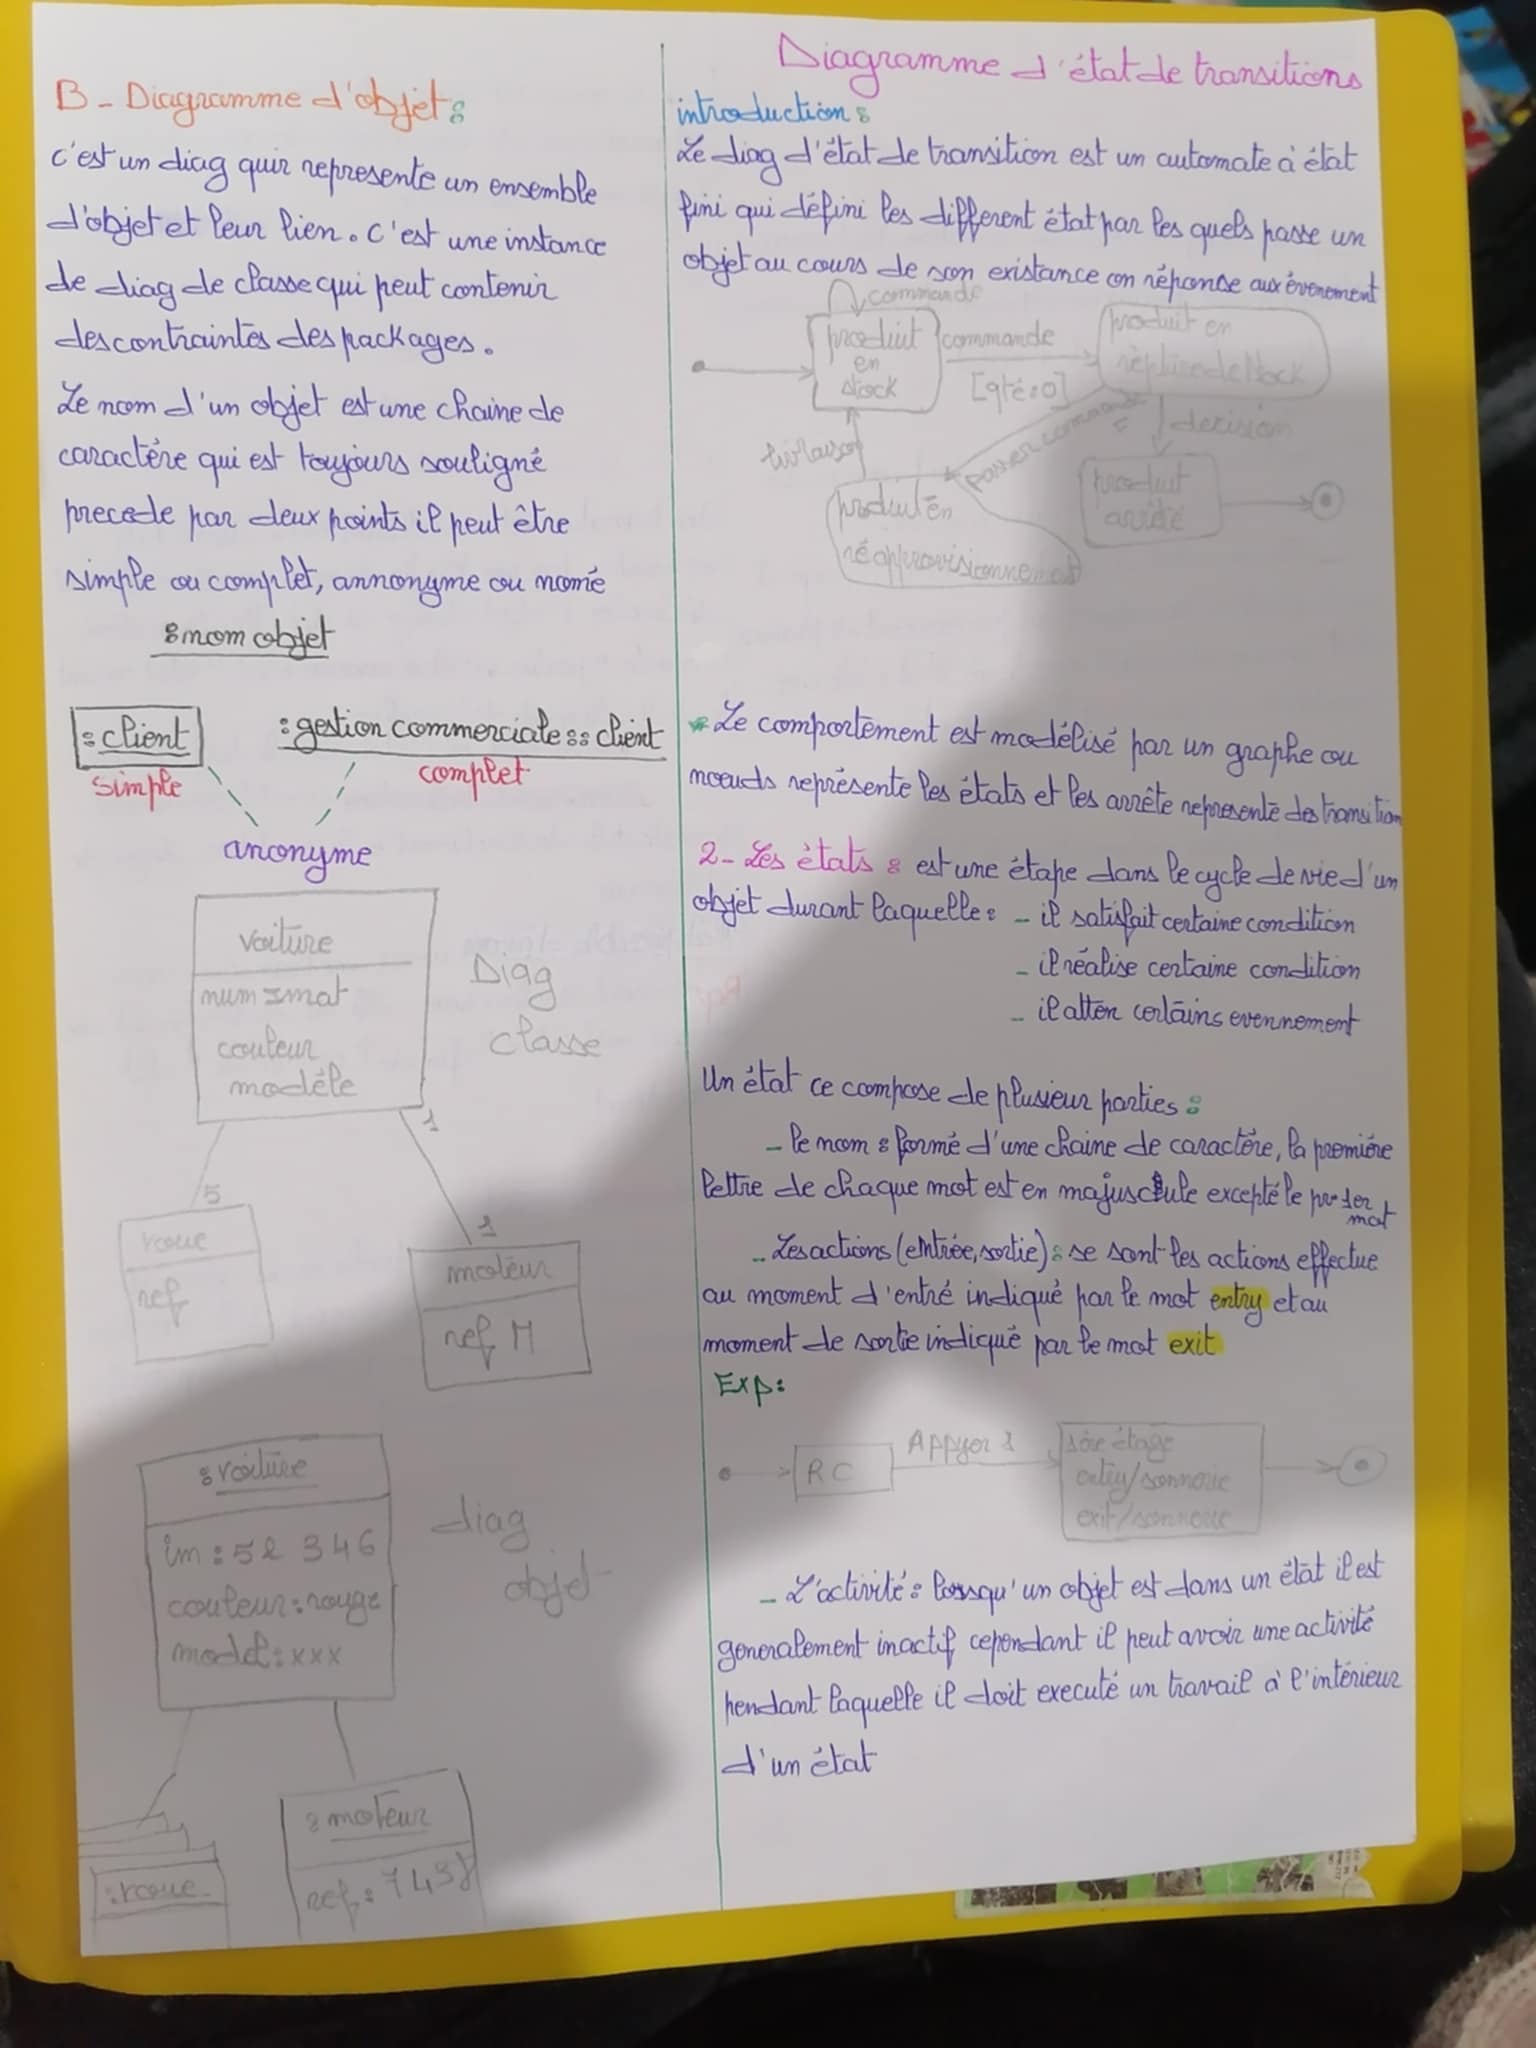 B - Diagramme d'objet :
c'est un diag quir represente un ensemble
d'objet et leur lien. c'est une instance
de diag de classe qui peut contenir
des contraintes des packages.
Le nom d'un objet est une chaine de
caractère qui est toujours souligné
precede par deux points il peut être
simple ou complet, annonyme ou nomé
: nom objet
: client
: gestion commerciale :: client
simple
complet
anonyme
voiture
num Imat
couleur
modéle
Diag
classe
1
5
1
roue
ref
moteur
ref M
: voiture
im : 52 346
couleur : rouge
model : xxx
diag
objet
: roue
: moteur
Diagramme d'état de transitions
introduction :
Le diag d'état de transition est un automate à état
fini qui défini les different état par les quels passe un
objet au cours de son existance en réponse aux évenement
commande
produit
en
stock
commande
[qté=0]
produit en
de stock
livraison
passer commande
decision
produit en
réapprovisionnement
produit
* Le comportement est modélisé par un graphe ou
nœuds représente les états et les arrête represente des transition
2 - Les états : est une étape dans le cycle de vie d'un
objet durant laquelle : - il satisfait certaine condition
- il réalise certaine condition
- il atten certains evennement
Un état ce compose de plusieur parties :
- le nom : formé d'une chaine de caractère, la première
lettre de chaque mot est en majuscule excepté le
mot
- Les actions (entrée, sortie) : se sont les actions effectue
au moment d'entré indiqué par le mot entry et au
moment de sortie indiqué par le mot exit
Exp :
RC
Appyer 1
1ère étage
entry/sonnerie
exit/sonnerie
- L'activité : lorsqu'un objet est dans un état il est
generalement inactif cependant il peut avoir une activité
pendant laquelle il doit executé un travail à l'intérieur
d'un état